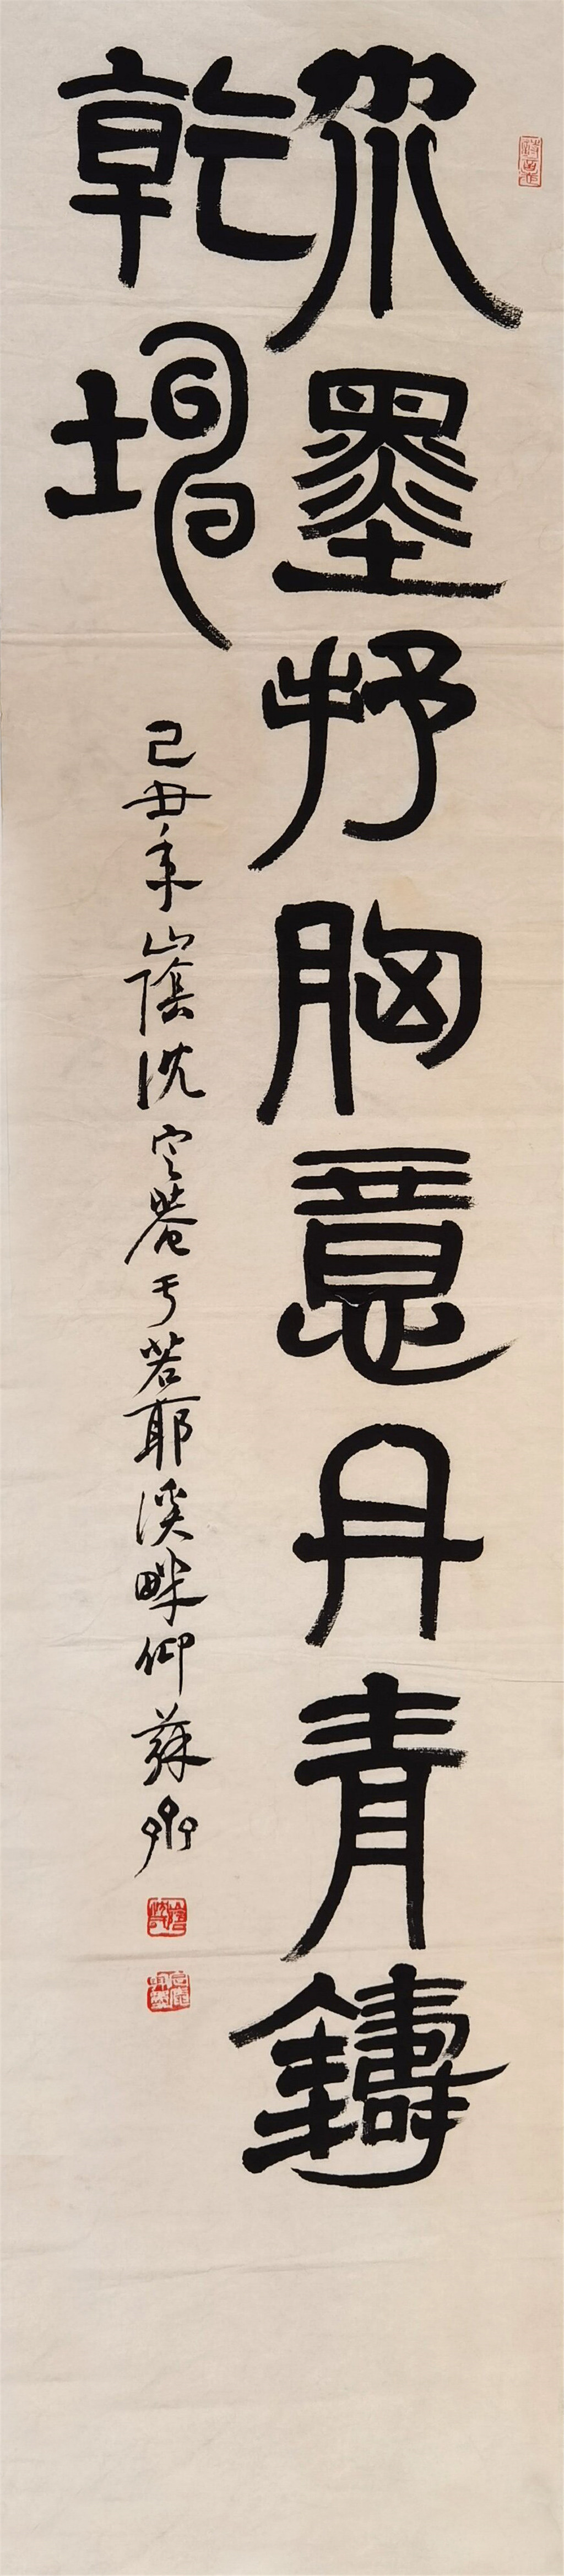 水墨抒胸意丹青鑄
乾坤
己丑年山陰沈定菴于若耶溪畔仰蘇齊